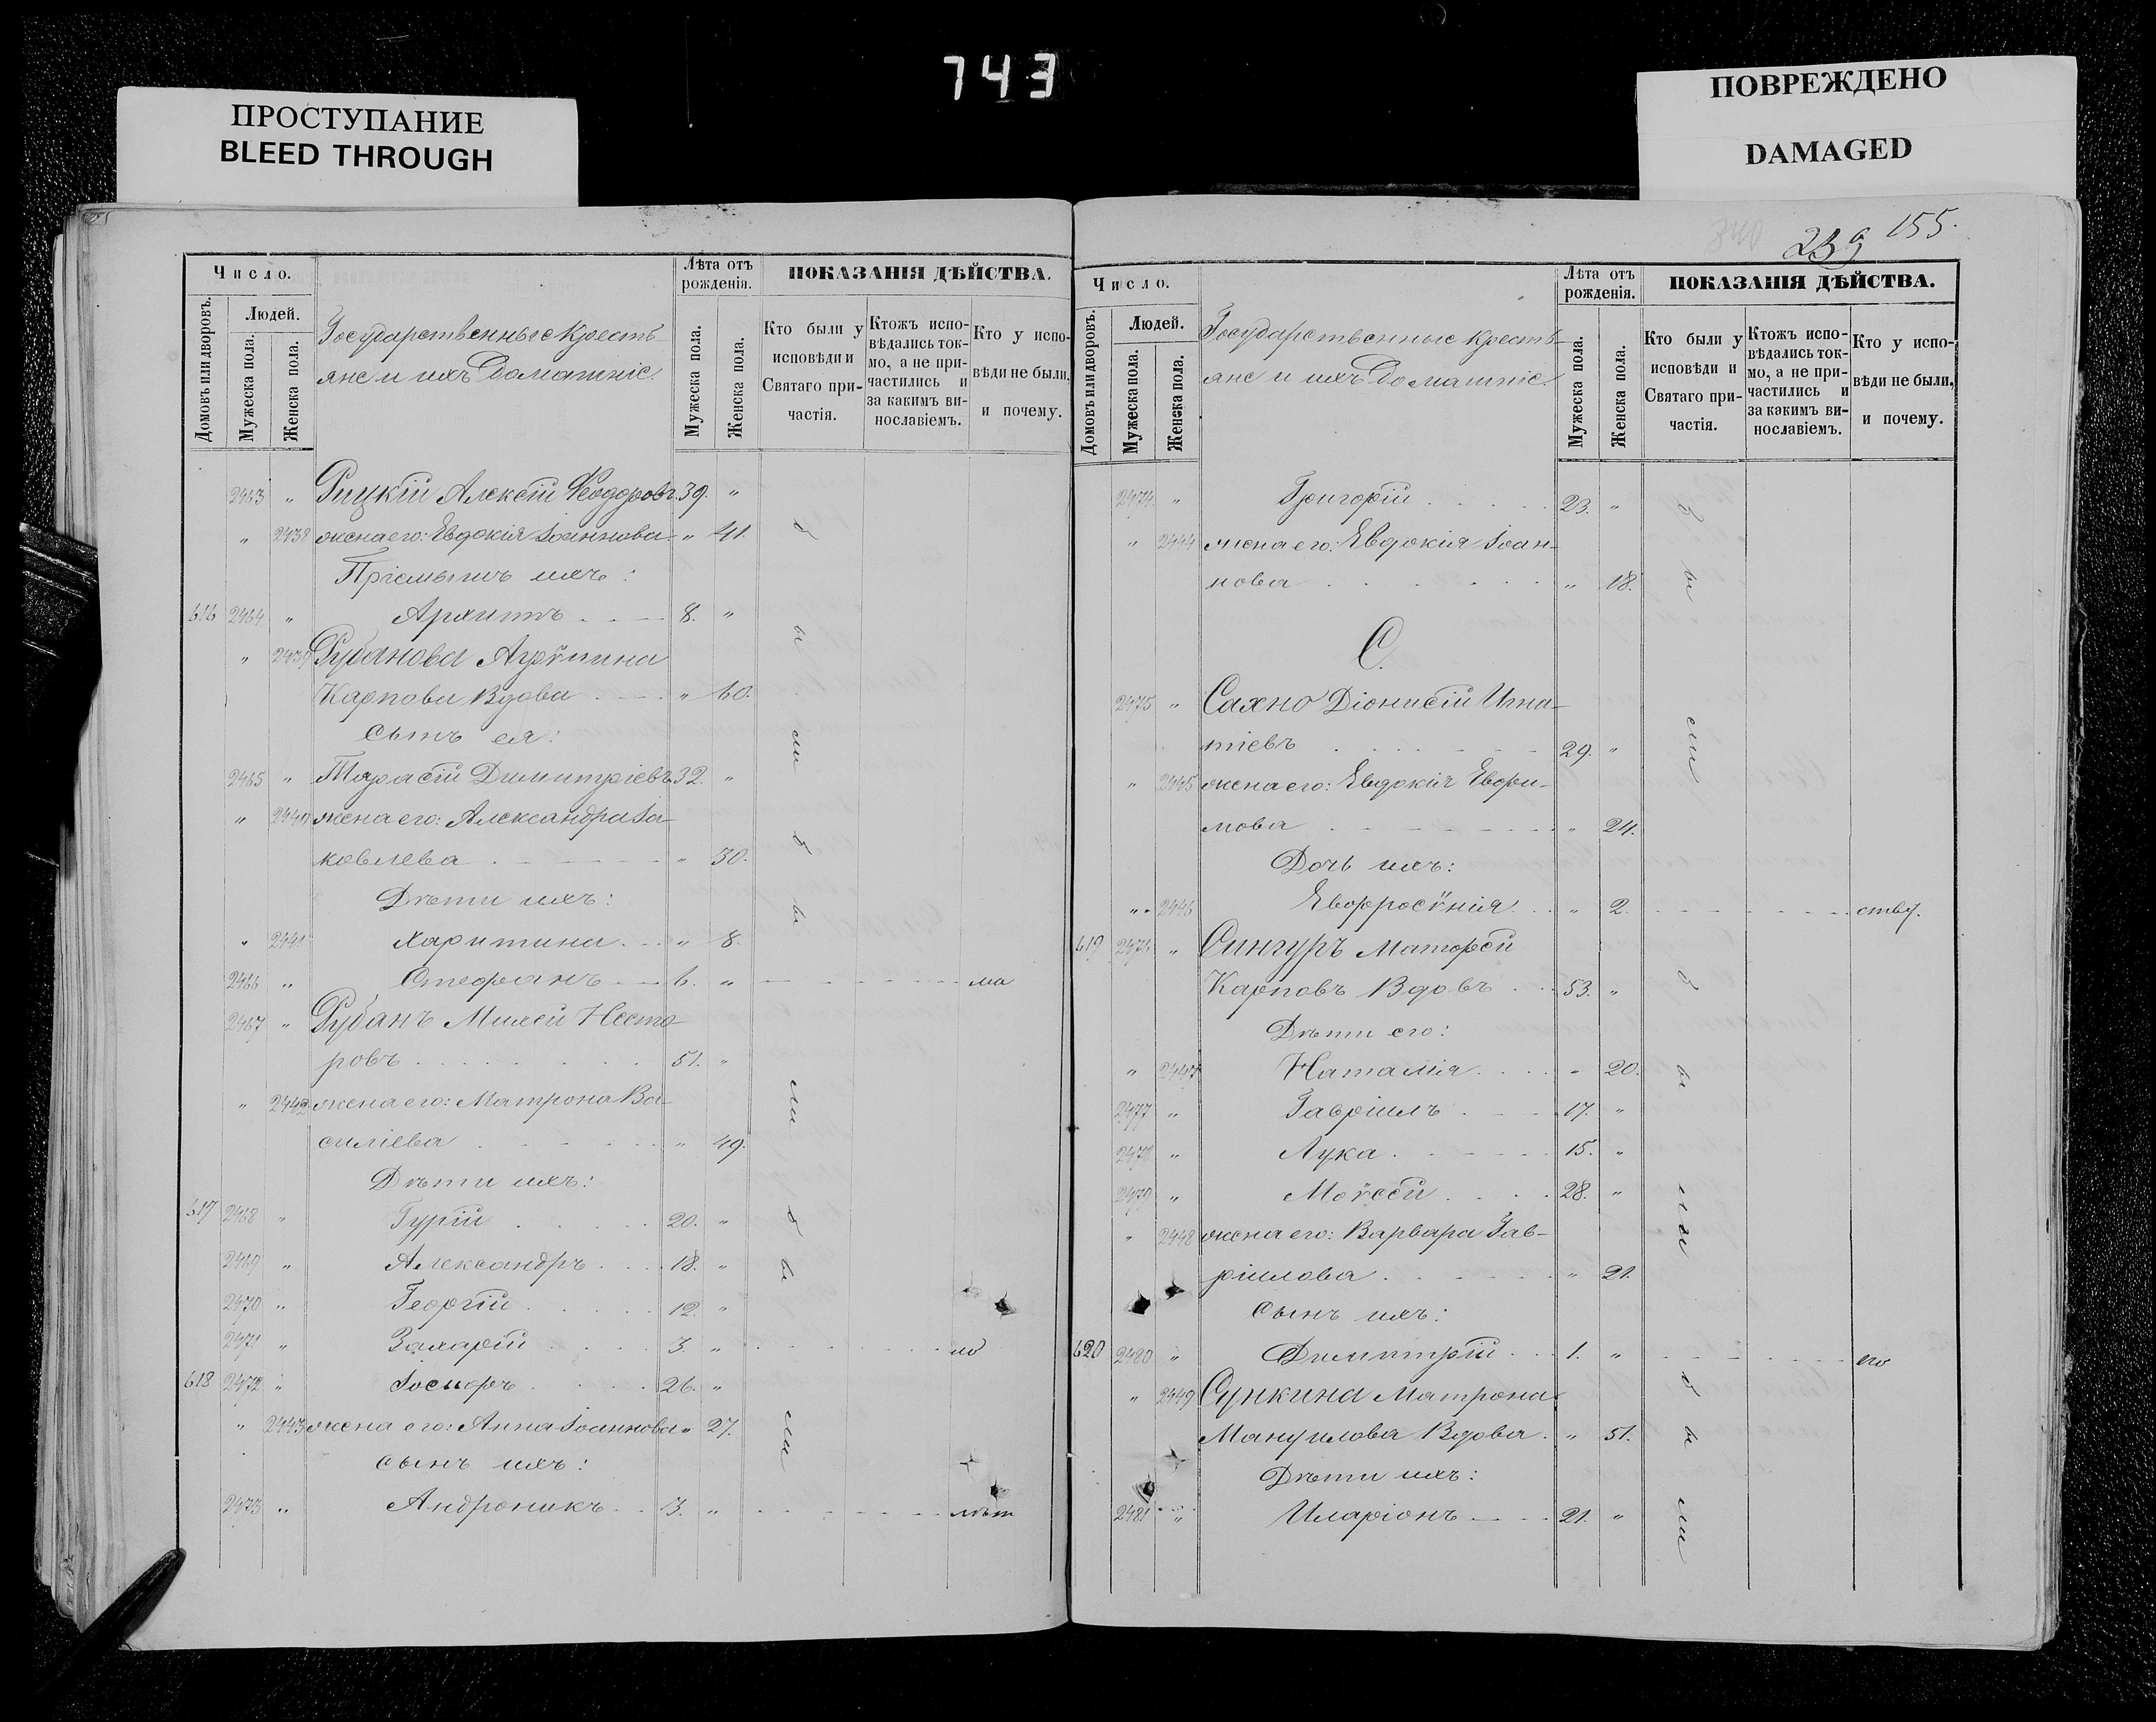 743
ПРОСТУПАНИЕ
BLEED THROUGH
ПОВРЕЖДЕНО
DAMAGED
Число.
Лѣта отъ рожденія.
ПОКАЗАНІЯ ДѢЙСТВА.
Домовъ или дворовъ.
Людей.
Мужеска пола.
Женска пола.
Государственные кресть-
яне и ихъ домашніе.
Мужеска пола.
Женска пола.
Кто были у исповѣди и Святаго при-частія.
Ктожъ испо-вѣдались ток-мо, а не при-частились и за какимъ ви-нославіемъ.
Кто у испо-вѣди не были, и почему.
2463 " Рицкій Алексій Ѳеодоровъ 39. "
" 2438 жена его: Евдокія Іоаннова " 41.
Пріемышъ ихъ:
616 2464 " Архипъ 8. "
" 2439 Рубанова Агрѵпина
Карпова Вдова " 60.
Сынъ ея:
2465 " Тарасій Димитріевъ 32. "
" 2440 жена его: Александра Іа-
ковлева " 30.
Дѣти ихъ:
" 2441 Харитина " 8.
2466 " Стефанъ 6. " ма
2467 " Рубанъ Михей Несто-
ровъ 51. "
" 2442 жена его: Матрона Ва-
силіева " 49.
Дѣти ихъ:
617 2468 " Гурій 20. "
2469 " Александръ 18. "
2470 " Георгій 12. "
2471 " Захарій 3. " ло
618 2472 " Іосифъ 26. "
" 2443 жена его: Анна Іоаннова " 27.
сынъ ихъ:
2473 " Андроникъ 3. " лѣт
б ы ли б ы ли б ы ли
239 155.
Число.
Лѣта отъ рожденія.
ПОКАЗАНІЯ ДѢЙСТВА.
Домовъ или дворовъ.
Людей.
Мужеска пола.
Женска пола.
Государственные кресть-
яне и ихъ домашніе.
Мужеска пола.
Женска пола.
Кто были у исповѣди и Святаго при-частія.
Ктожъ испо-вѣдались ток-мо, а не при-частились и за какимъ ви-нославіемъ.
Кто у испо-вѣди не были, и почему.
2474 " Григорій 23. "
" 2444 жена его: Евдокія Іоан-
нова " 18.
С.
2475 " Сахно Діонисій Игна-
тіевъ 29. "
" 2445 жена его: Евдокія Евфи-
мова " 24.
Дочь ихъ:
" 2446 Евфросѵнія " 2. ству.
619 2476 " Сингуръ Матфей
Карповъ Вдовъ 53. "
Дѣти его:
" 2447 Наталія " 20.
2477 " Гавріилъ 17. "
2478 " Лука 15. "
2479 " Моѵсей 28. "
" 2448 жена его: Варвара Гав-
ріилова " 21.
сынъ ихъ:
620 2480 " Димитрій 1. " его
" 2449 Матрона
Мануилова Вдова " 51.
Дѣти ихъ:
2481 " Иларіонъ 21. "
б ы ли б ы ли б ы ли